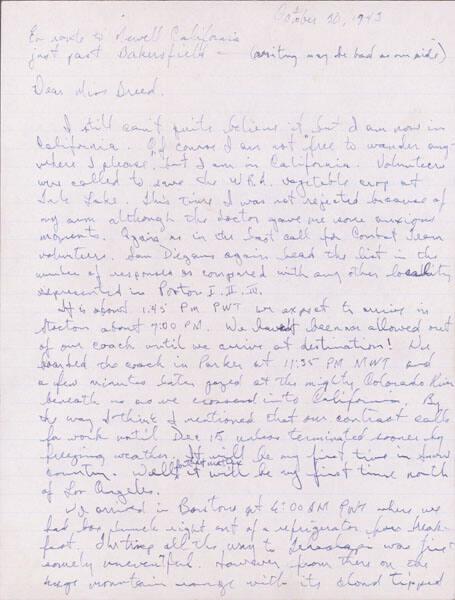 October 20, 1943
En route to Newell California
just past Bakersfield — (writing may be bad as we ride)
Dear Miss Breed,
I still can't quite believe it but I am now in
California. Of course I am not free to wander any-
where I please, but I am in California. Volunteers
were called to save the W.R.A. vegetable crop at
Tule Lake. This time I was not rejected because of
my arm although the doctor gave me some anxious
moments. Again as in the last call for Combat Team
volunteers, San Diegans again head the list in the
number of responses as compared with any other locality
represented in Poston I, II, III.
It is about 1:45 PM PWT we expect to arrive in
Stockton about 7:00 PM. We haven't been allowed out
of our coach until we arrive at destination! We
boarded the coach in Parker at 11:35 PM MWT and
a few minutes later gazed at the mighty Colorado River
beneath us as we crossed into California. By
the way I think I mentioned that our contract calls
for work until Dec 15 unless terminated sooner by
freezing weather. It will be my first time in snow
country. Well for that matter it will be my first time north
of Los Angeles.
We arrived in Barstow at 6:00 AM PWT where we
had box lunch right out of a refrigerator for break-
fast. Sitting all the way to was
uneventful. However from there on the
huge mountain range with its cloud tipped